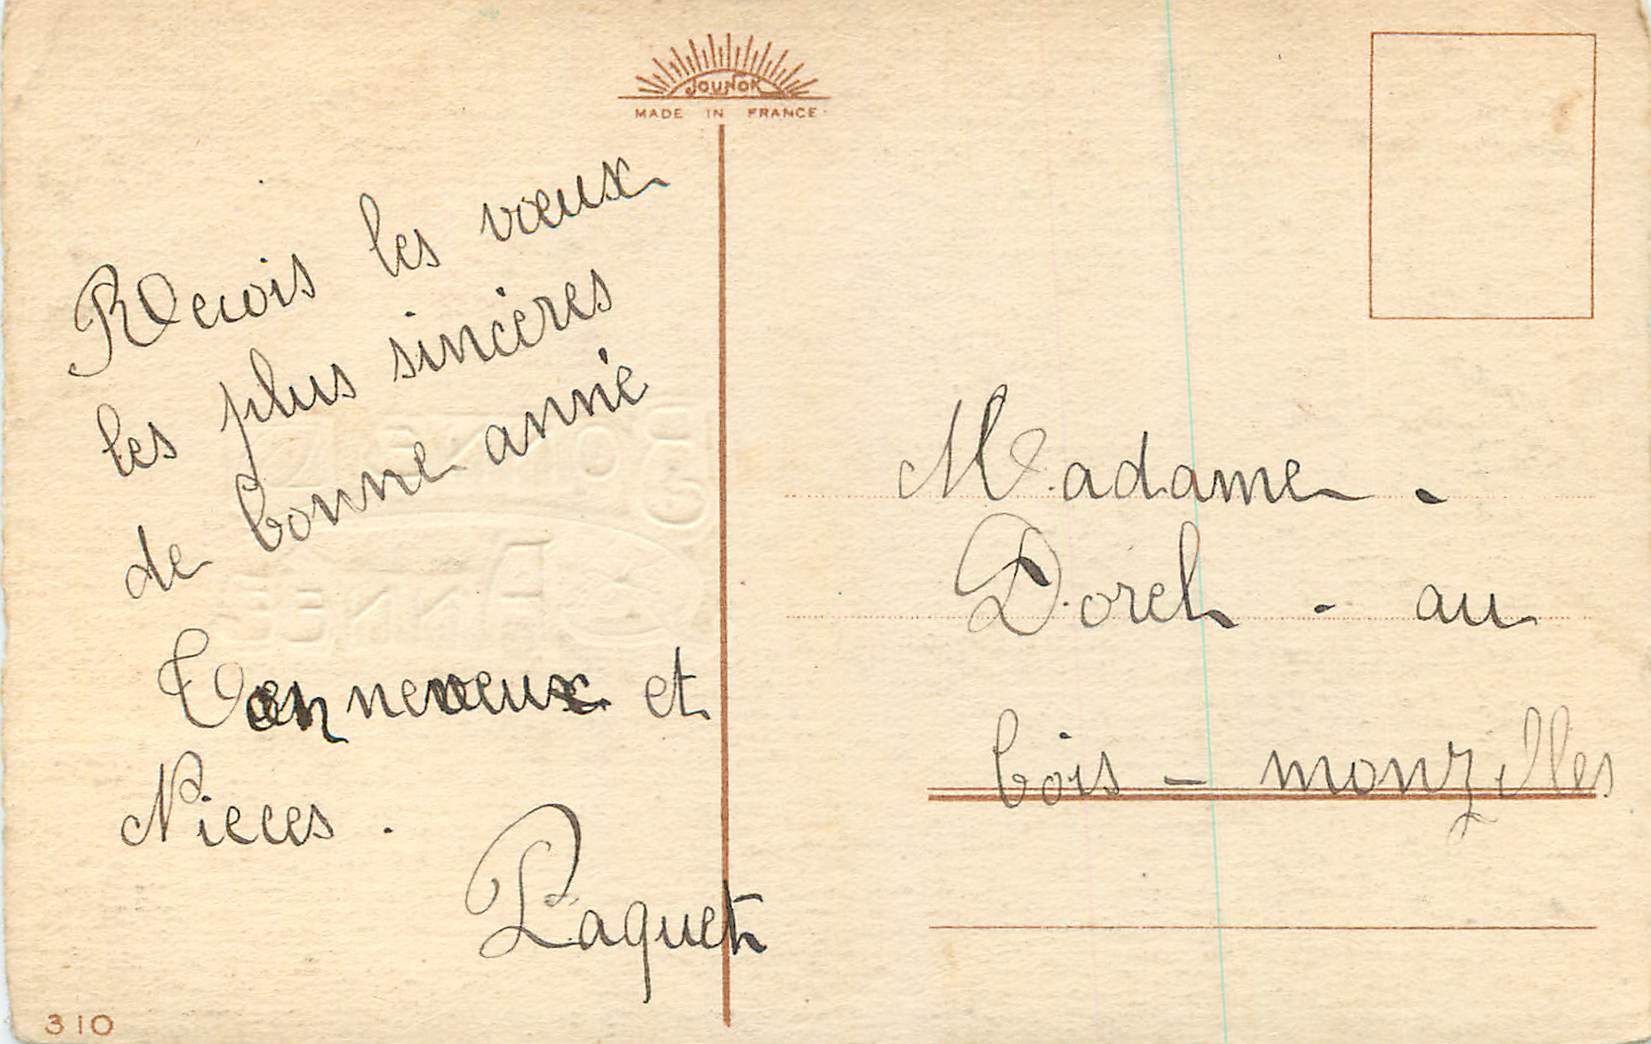 JOUNOK
MADE IN FRANCE
Recois les vœux
les plus sincères
de bonne année
Ton neveux et
Nieces.
Paquet
Madame.
Dorel - au
bois - monzilles
BONNE
ANNÉE
310